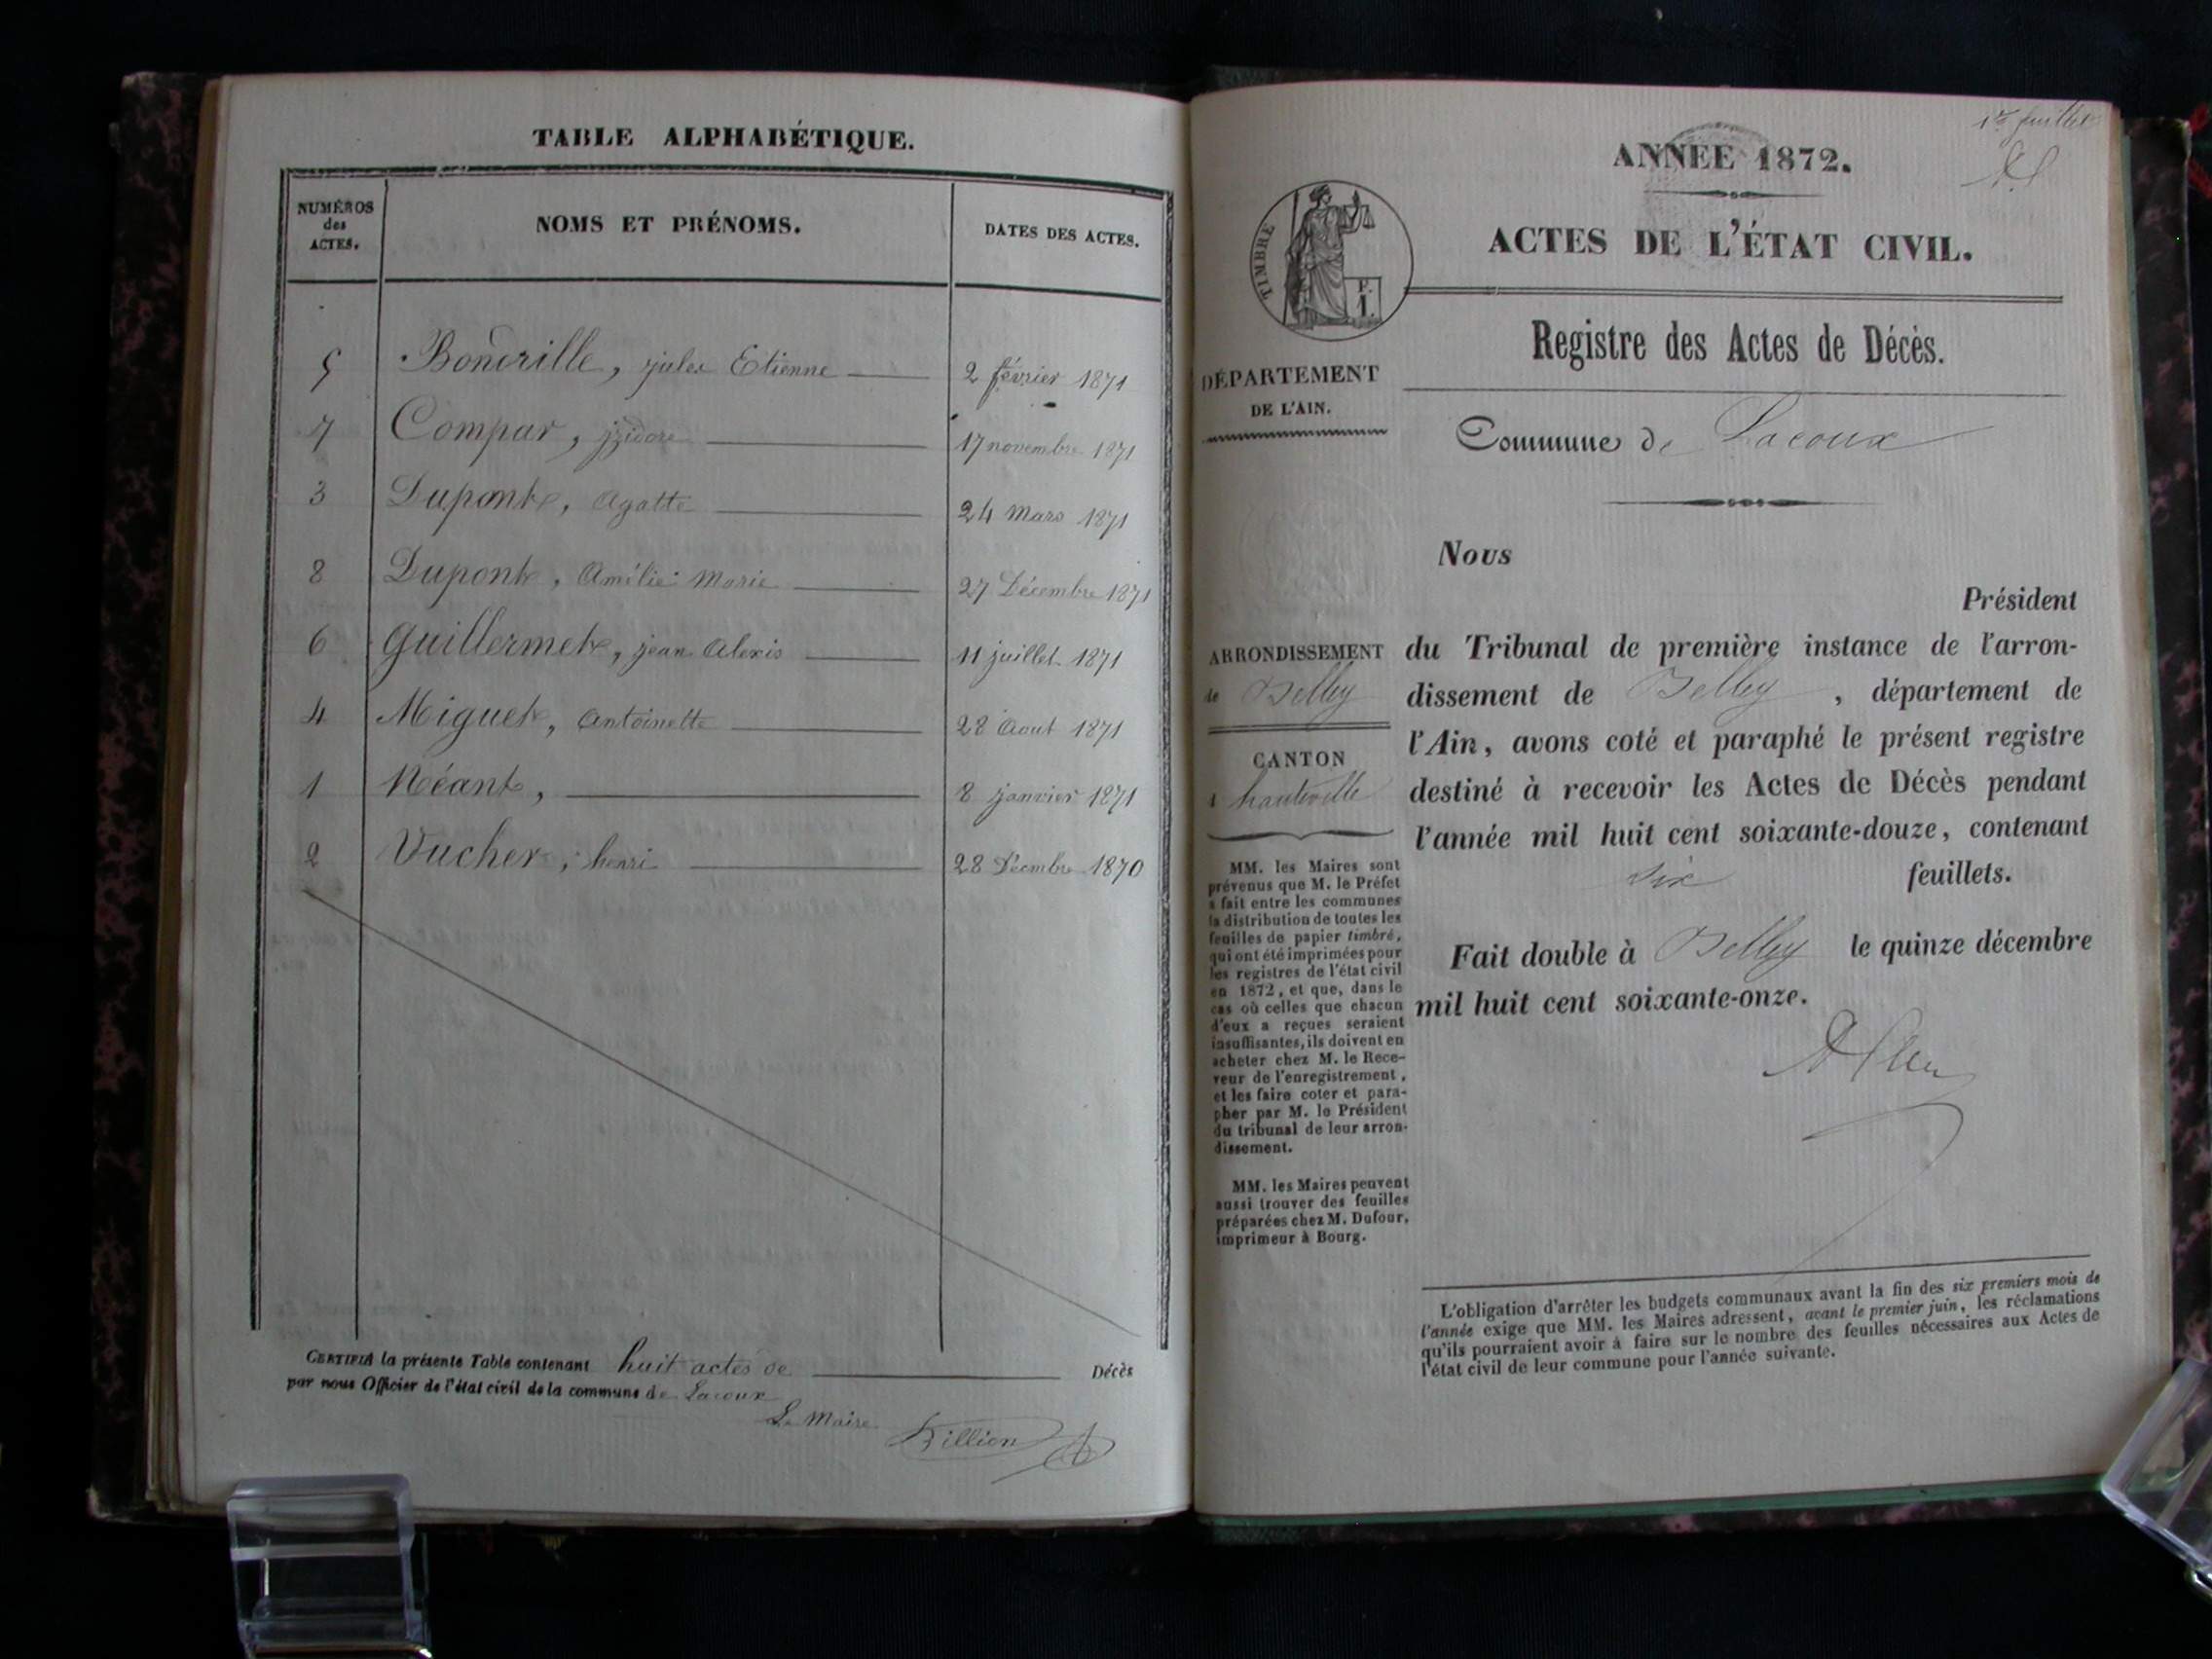 TABLE ALPHABÉTIQUE.
NUMÉROS
des
ACTES.
NOMS ET PRÉNOMS.
DATES DES ACTES.
5 Bondrille, jules Etienne 2 février 1871
7 Compar, jzidore 17 novembre 1871
3 Dupont, Agatte 24 Mars 1871
8 Dupont, Amélie Marie 27 Décembre 1871
6 Guillermet, jean Alexis 11 juillet 1871
4 Miguet, Antoinette 28 Aout 1871
1 Néant, 8 janvier 1871
2 Vucher, henri 28 Décembre 1870
CERTIFIÉ la présente Table contenant huit actes de Décès
par nous Officier de l'état civil de la commune de Lacoux
Le Maire
1er feuillet
ANNÉE 1872.
ACTES DE L'ÉTAT CIVIL.
TIMBRE
F.
1.
Registre des Actes de Décès.
DÉPARTEMENT
DE L'AIN.
Commune de Lacoux
ARRONDISSEMENT
de Belley
CANTON
d hauteville
MM. les Maires sont
prévenus que M. le Préfet
a fait entre les communes
la distribution de toutes les
feuilles de papier timbré,
qui ont été imprimées pour
les registres de l'état civil
en 1872, et que, dans le
cas où celles que chacun
d'eux a reçues seraient
insuffisantes, ils doivent en
acheter chez M. le Rece-
veur de l'enregistrement,
et les faire coter et para-
pher par M. le Président
du tribunal de leur arron-
dissement.
MM. les Maires peuvent
aussi trouver des feuilles
préparées chez M. Dufour,
imprimeur à Bourg.
Nous
Président
du Tribunal de première instance de l'arron-
dissement de Belley, département de
l'Ain, avons coté et paraphé le présent registre
destiné à recevoir les Actes de Décès pendant
l'année mil huit cent soixante-douze, contenant
six feuillets.
Fait double à Belley le quinze décembre
mil huit cent soixante-onze.
L'obligation d'arrêter les budgets communaux avant la fin des six premiers mois de
l'année exige que MM. les Maires adressent, avant le premier juin, les réclamations
qu'ils pourraient avoir à faire sur le nombre des feuilles nécessaires aux Actes de
l'état civil de leur commune pour l'année suivante.